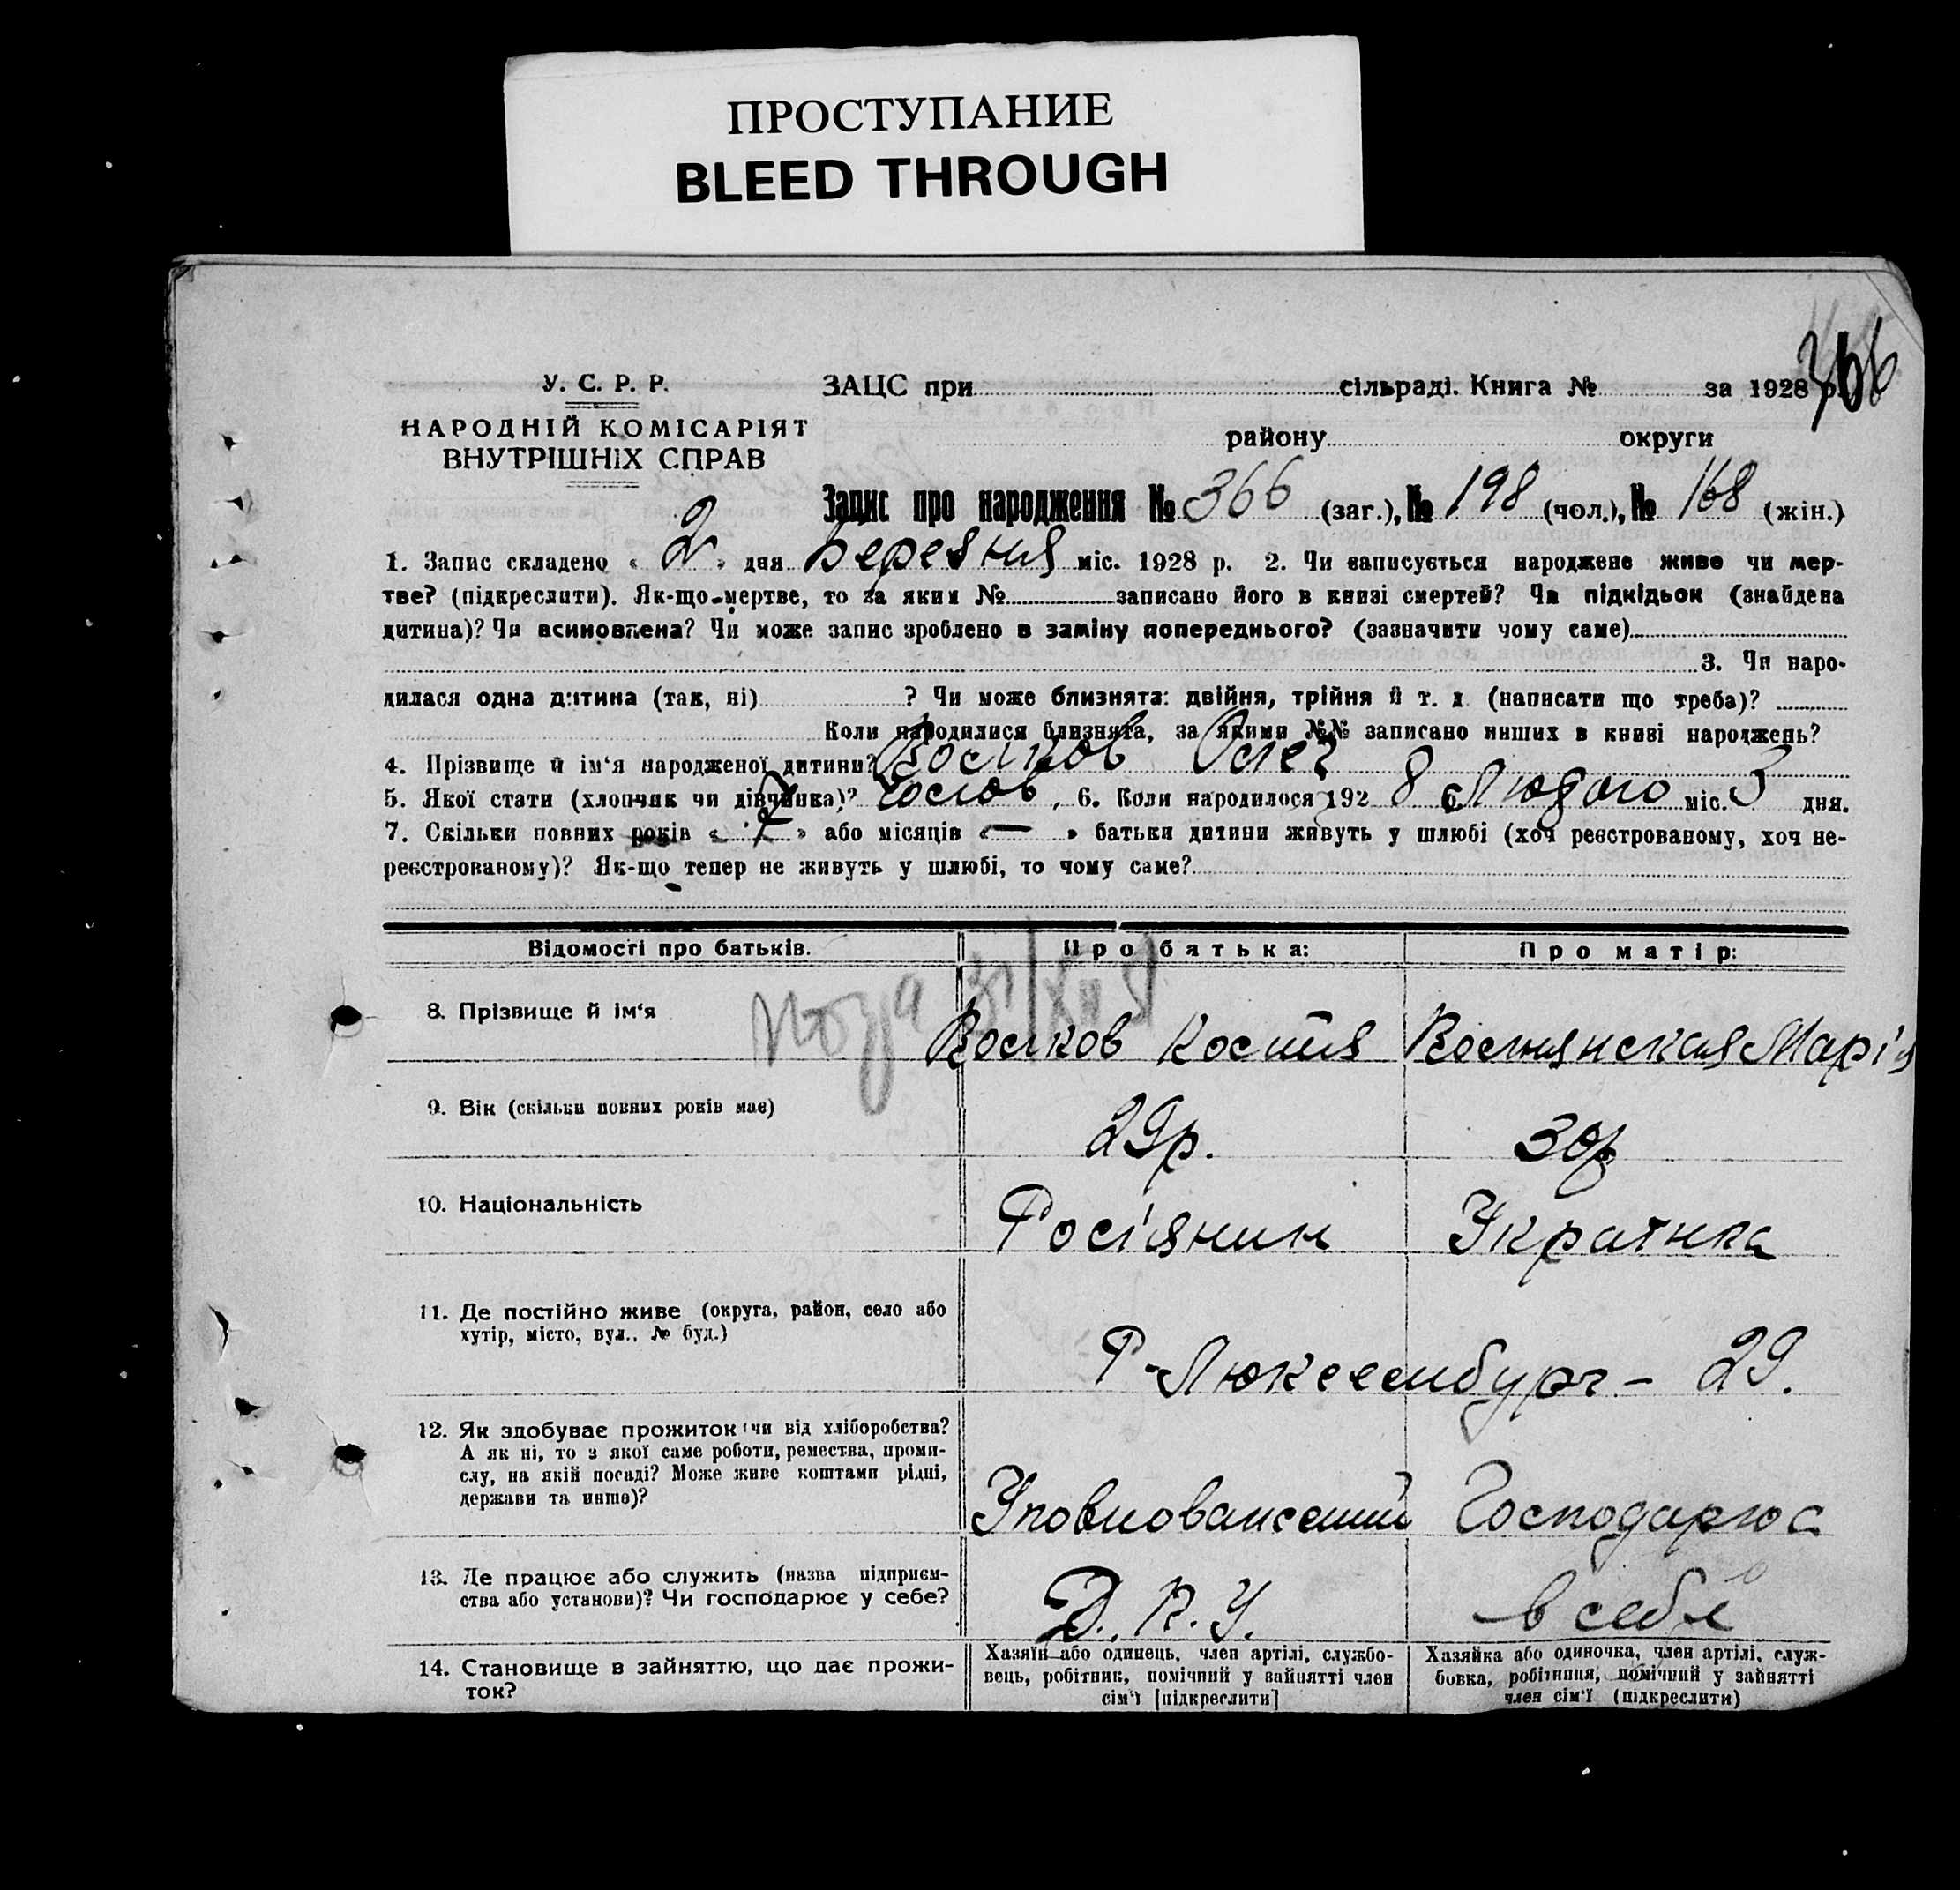 ПРОСТУПАНИЕ
BLEED THROUGH
366
У. С. Р. Р.
НАРОДНІЙ КОМІСАРІЯТ
ВНУТРІШНІХ СПРАВ
ЗАЦС при сільраді. Книга № за 1928 р.
району округи
Запис про народження № 366 (заг.), № 198 (чол.), № 168 (жін.)
1. Запис складено « 2 » дня Березня міс. 1928 р. 2. Чи записується народжене живе чи мер-
тве? (підкреслити). Як-що мертве, то за яким № записано його в книзі смертей? Чи підкідьок (знайдена
дитина)? Чи всиновлена? Чи може запис зроблено в заміну попереднього? (зазначити чому саме)
3. Чи наро-
дилася одна дитина (так, ні) ? Чи може близнята: двійня, трійня й т. д. (написати що треба)?
Коли народилися близнята, за якими №№ записано инших в книзі народжень?
4. Прізвище й ім‘я народженої дитини? Олег
5. Якої стати (хлопчяк чи дівчинка)? 6. Коли народилося 192 8 Лютого міс. 3 дня.
7. Скільки повних років « » або місяців « — » батьки дитини живуть у шлюбі (хоч реєстрованому, хоч не-
реєстрованому)? Як-що тепер не живуть у шлюбі, то чому саме?
Відомості про батьків. Про батька: Про матір:
8. Прізвище й ім‘я Костя Марія
9. Вік (скільки повних років має) 29р. 30р
10. Національність Росіянин Українка
11. Де постійно живе (округа, район, село або
хутір, місто, вул., № буд.)
Р-Люксембург – 29.
12. Як здобуває прожиток (чи від хліборобства?
А як ні, то з якої саме роботи, ремества, проми-
слу, на якій посаді? Може живе коштами рідні,
держави та инше)?
Господарює
13. Де працює або служить (назва підприєм-
ства або установи)? Чи господарює у себе?
Д. П. У. в себе
14. Становище в зайняттю, що дає прожи-
ток?
Хазяїн або одинець, член артілі, службо-
вець, робітник, помічний у зайнятті член
сім‘ї [підкреслити]
Хазяйка або одиночка, член артілі, служ-
бовка, робітниця, помічний у зайнятті
член сім‘ї (підкреслити)